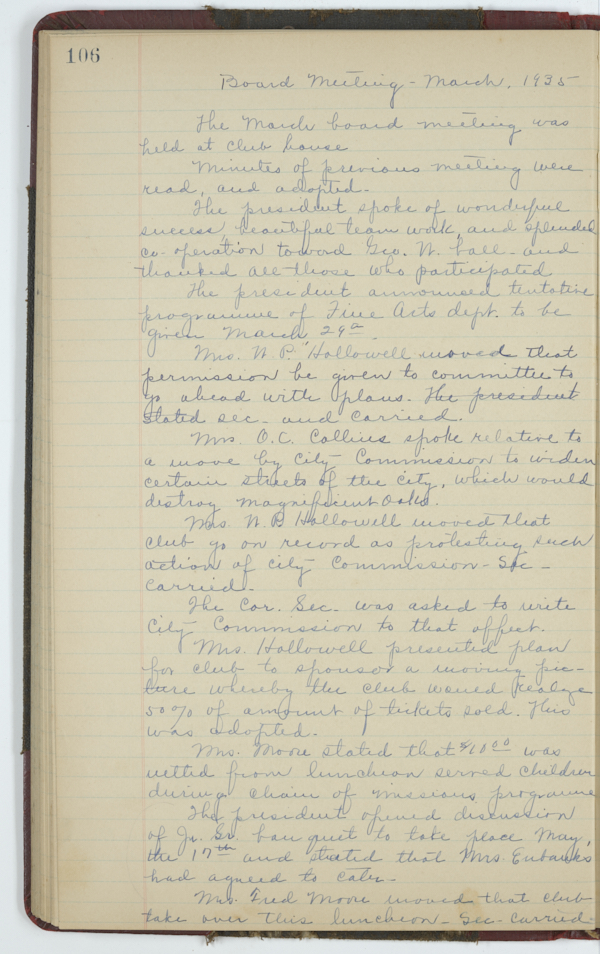 106
Board Meeting - March, 1935
The March board meeting was
held at club house
Minutes of previous meeting were
read, and adopted.
The president spoke of wonderful
success, beautiful team work, and splendid
co-operation toward Geo. W. ball - and
thanked all those who participated
The president announced tentative
programme of Fine Arts dept. to be
given March 29th.
Mrs. W. P. Hallowell moved that
permission be given to committee to
go ahead with plans. The president
stated sec. and carried.
Mrs. O. C. Collins spoke relative to
a move by City Commission to widen
certain streets of the city, which would
distroy magnificent Oaks.
Mrs. W. P. Hallowell moved that
club go on record as protesting such
action of City Commission - Sec -
carried.
The Cor. Sec. was asked to write
City Commission to that effect.
Mrs. Hallowell presented plan
for club to sponsor a moving pic-
ture whereby the club would realize
50% of amount of tickets sold. This
was adopted.
Mrs. Moore stated that $10.00 was
netted from luncheon served children
during chain of missions programme
The president opened discussion
of Jr. Sr. banquet to take place May,
the 17th and stated that Mrs. Eubanks
had agreed to cater -
Mrs. Fred Moore moved that club
take over this luncheon - Sec - Carried -